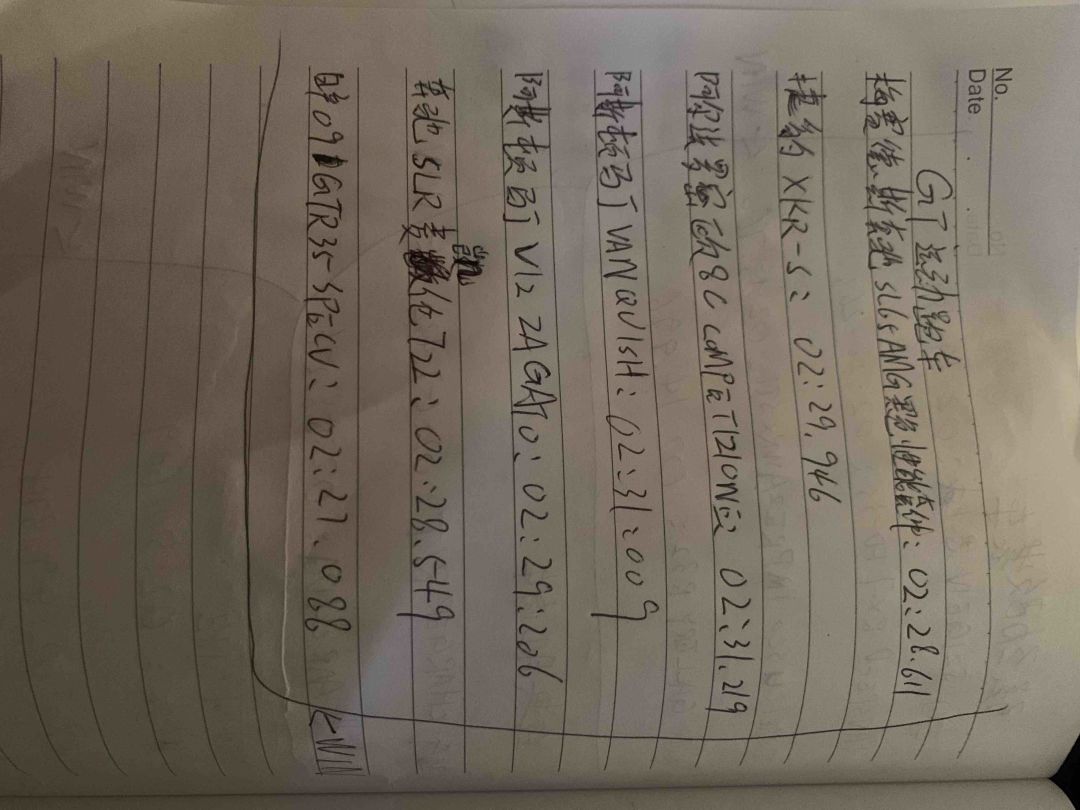 No.
Date
GT运动跑车
梅赛德斯奔驰SLS AMG黑色性能套件：02:28.611
捷豹 XKR-S：02:29.946
阿尔法罗密欧8C COMPETIZIONE 02:31.219
阿斯顿马丁 VANQUISH：02:31:009
阿斯顿马丁 V12 ZAGATO：02:29:206
奔驰 SLR 麦凯伦722：02:28.549
日产09 GTR35-SPECV：02:27.088 <WIN